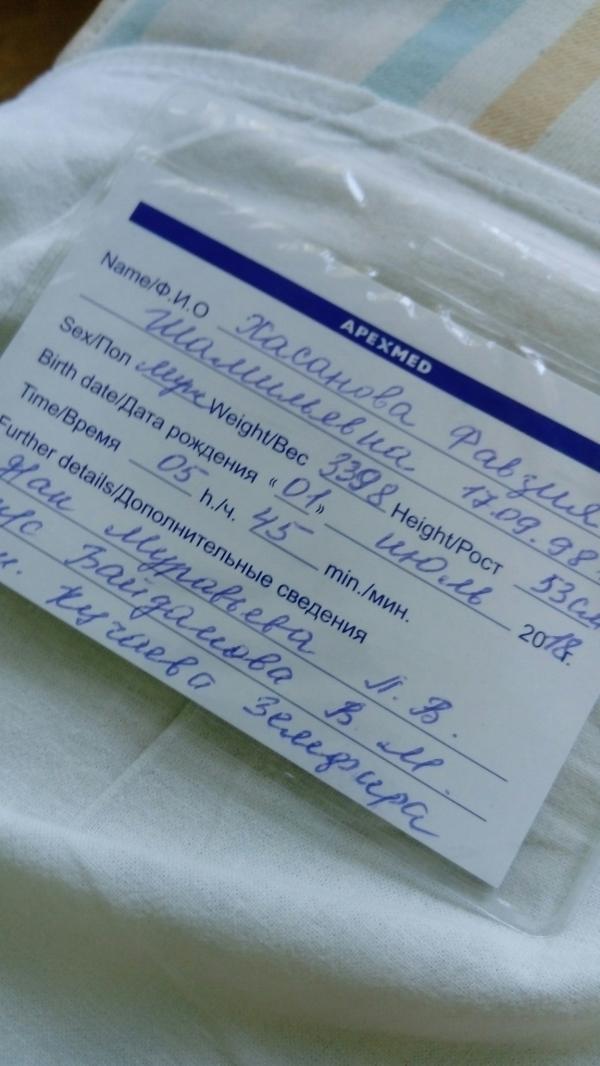 APEXMED
Name/Ф.И.О Хасанова Фавзия
Шамильевна 17.09.98
Sex/Пол муж Weight/Вес 3398 Height/Рост 53см
Birth date/Дата рождения «01» июль 2018г.
Time/Время 05 h./ч. 45 min./мин.
Further details/Дополнительные сведения
Муравьева Л. В.
Байдамова В. М.
Кучаева Земфира